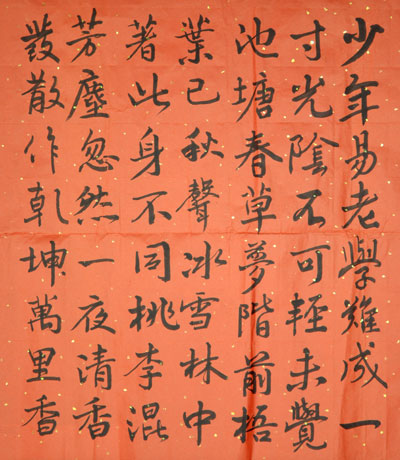 少年易老學難成一
寸光陰不可輕未覺
池塘春草夢階前梧
葉已秋聲冰雪林中
著此身不同桃李混
芳塵忽然一夜清香
發散作乾坤萬里香